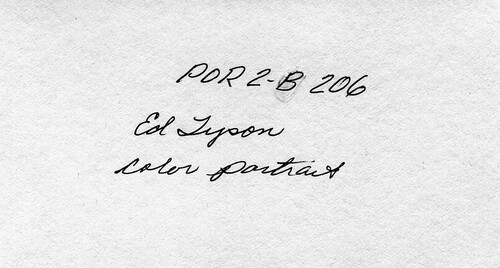 POR 2-B 206
Ed Tyson
color portrait